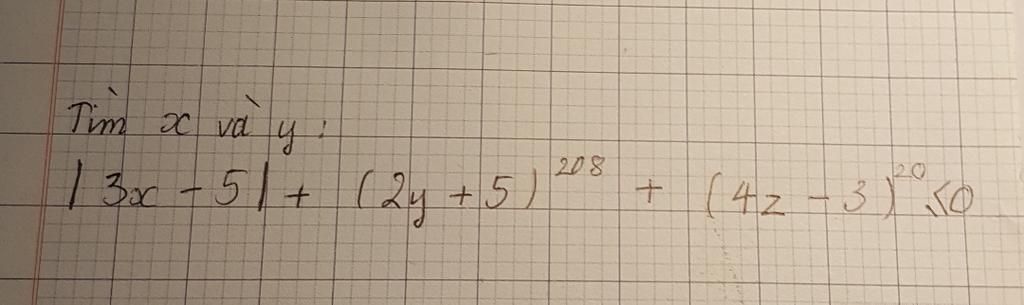 Tìm x và y:
|3x - 5| + (2y + 5)^208 + (4z - 3)^20 ≤ 0